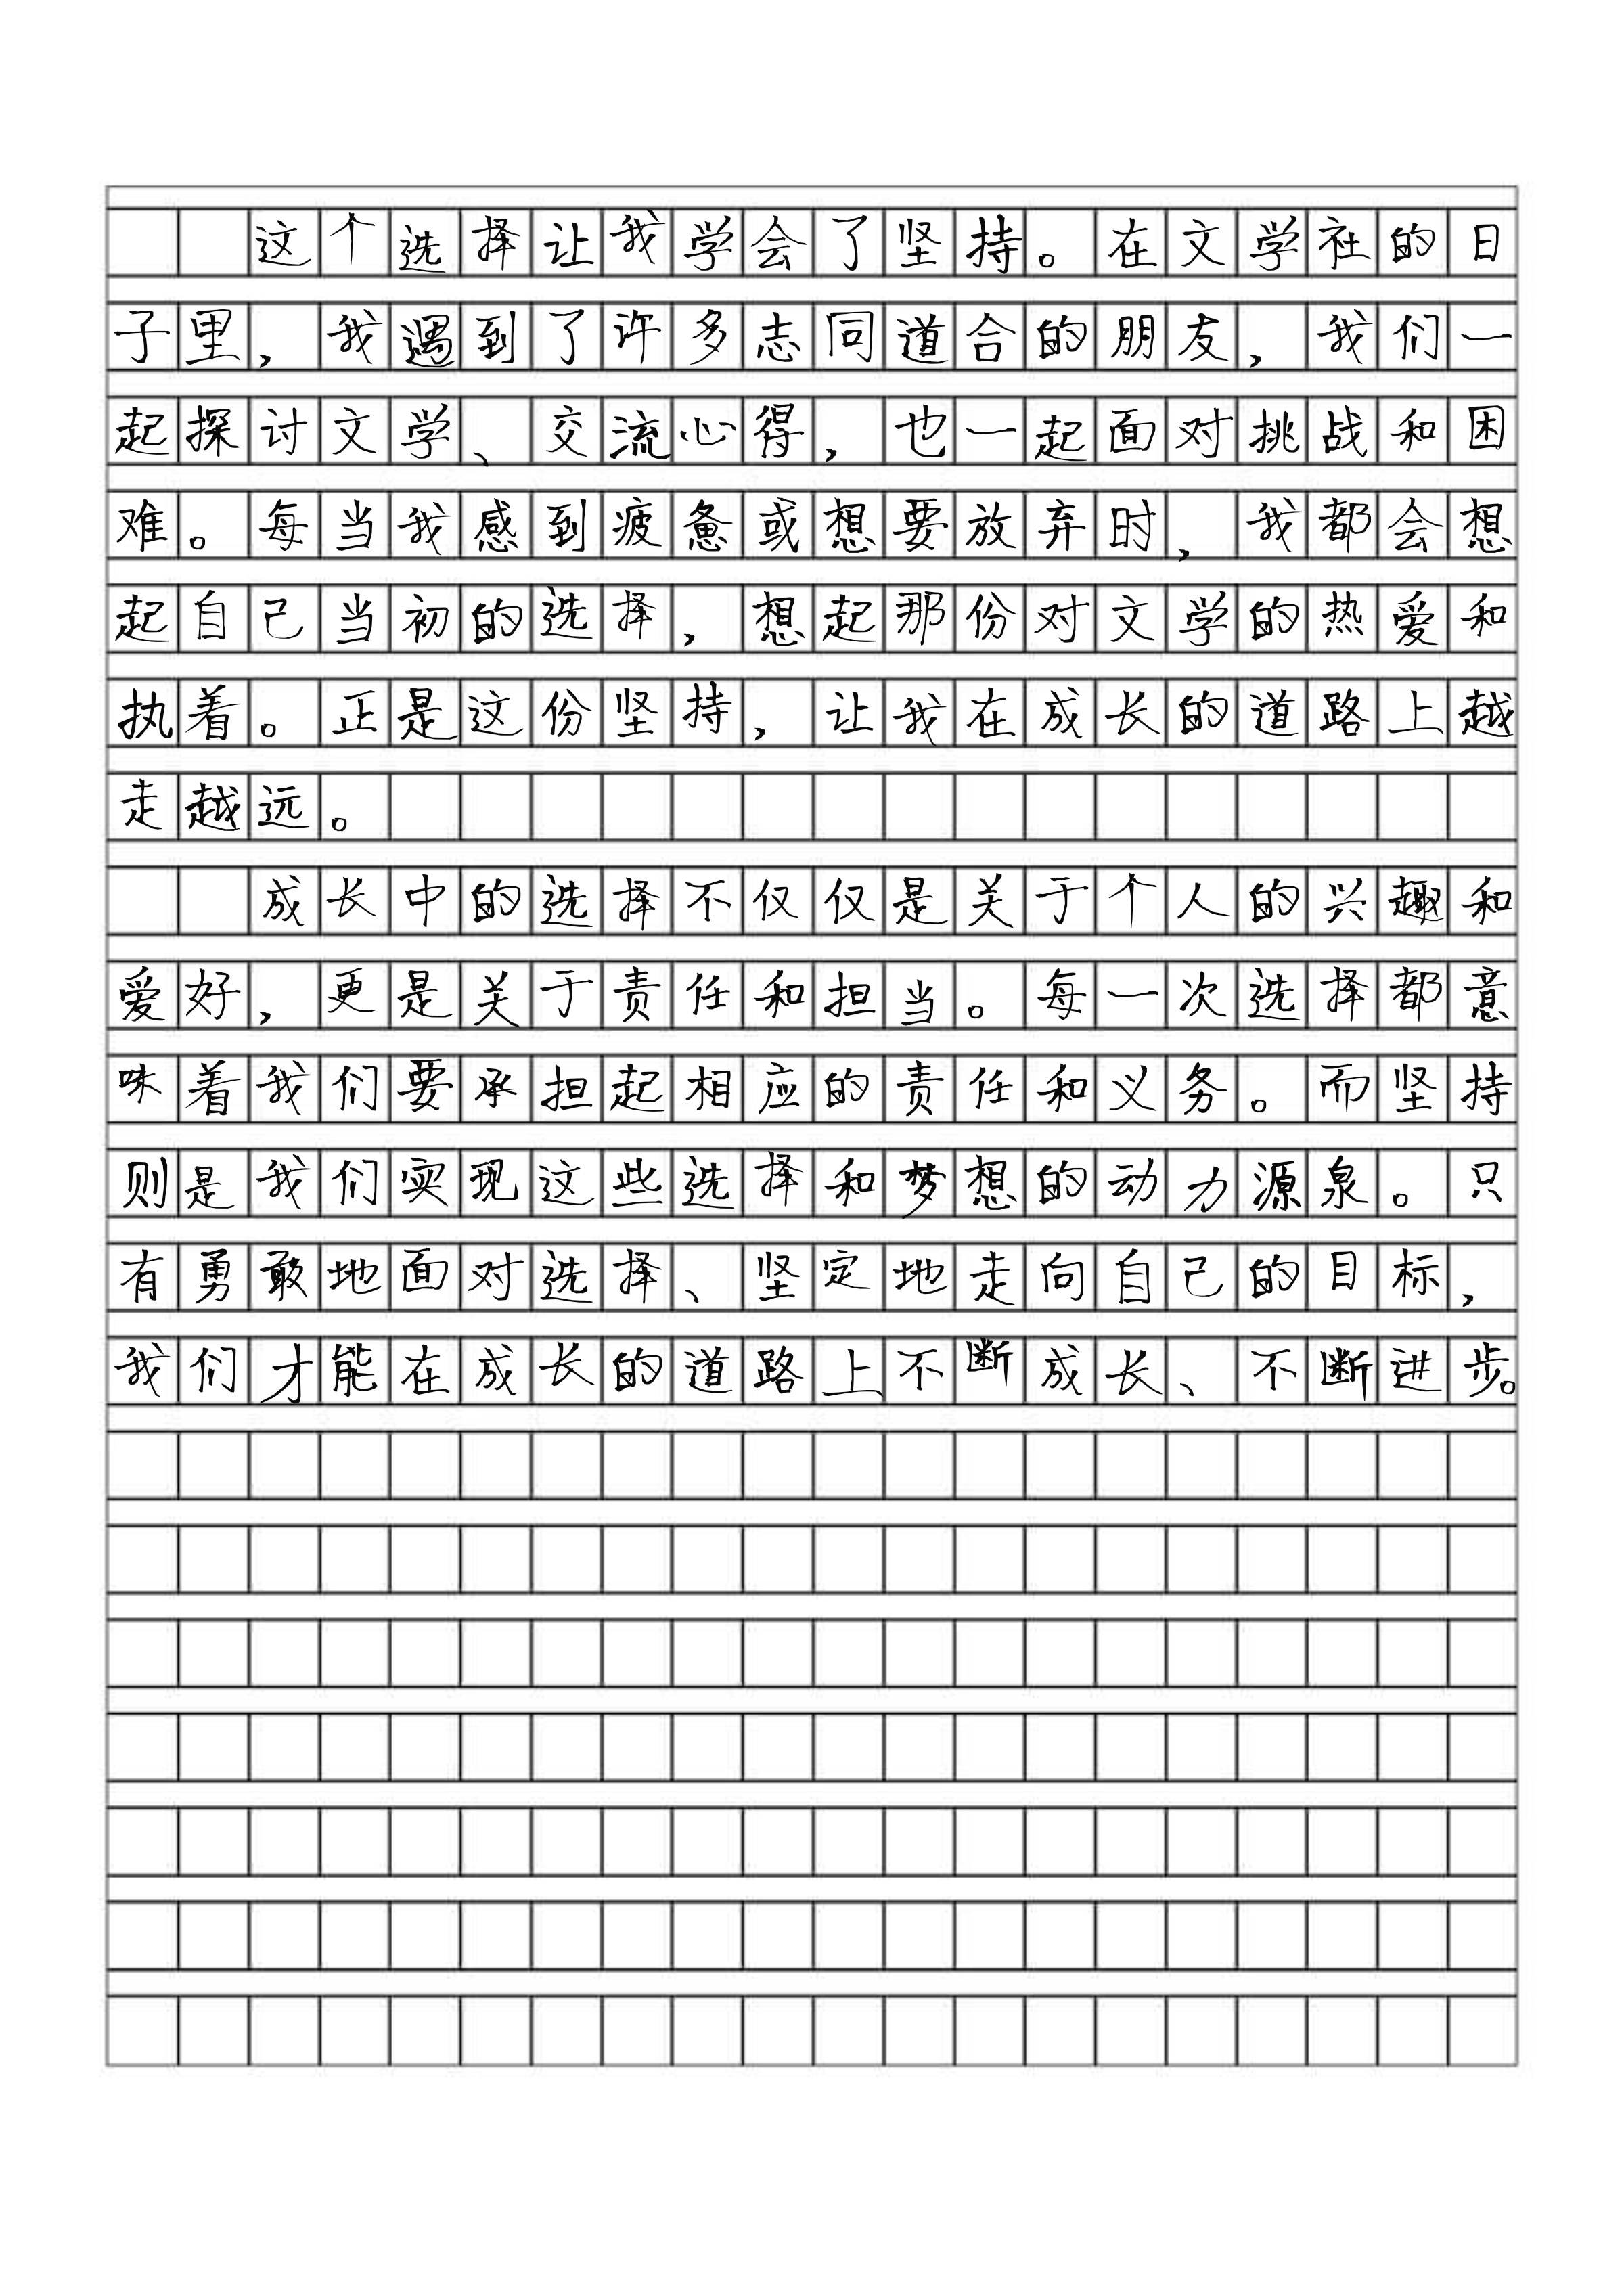 这个选择让我学会了坚持。在文学社的日
子里，我遇到了许多志同道合的朋友，我们一
起探讨文学、交流心得，也一起面对挑战和困
难。每当我感到疲惫或想要放弃时，我都会想
起自己当初的选择，想起那份对文学的热爱和
执着。正是这份坚持，让我在成长的道路上越
走越远。
成长中的选择不仅仅是关于个人的兴趣和
爱好，更是关于责任和担当。每一次选择都意
味着我们要承担起相应的责任和义务。而坚持
则是我们实现这些选择和梦想的动力源泉。只
有勇敢地面对选择、坚定地走向自己的目标，
我们才能在成长的道路上不断成长、不断进步。